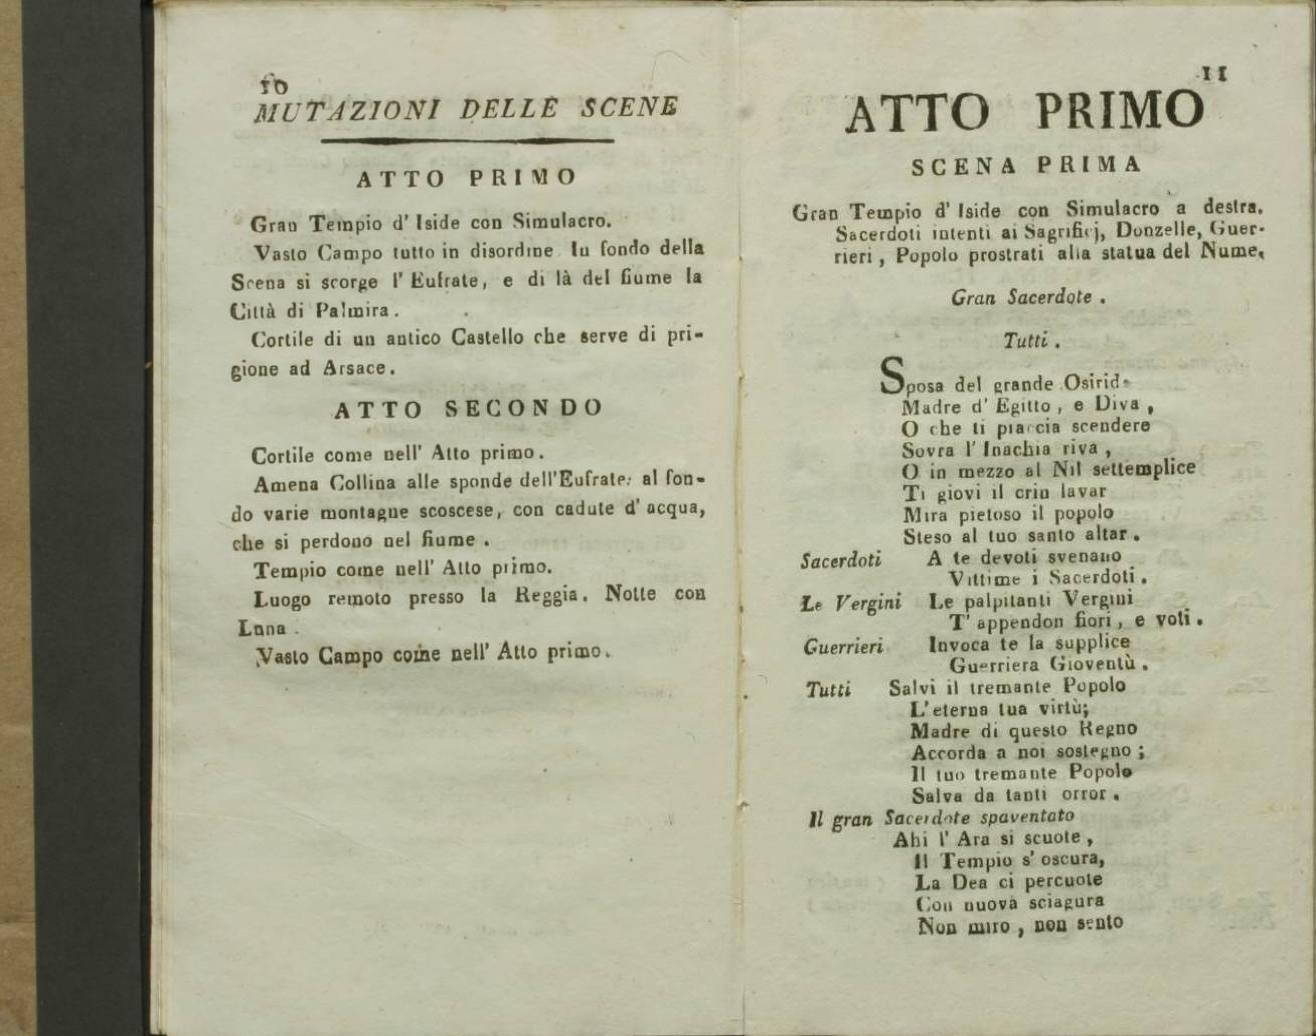 10
MUTAZIONI DELLE SCENE
ATTO PRIMO
Gran Tempio d' Iside con Simulacro.
Vasto Campo tutto in disordine In fondo della
Scena si scorge l' Eufrate, e di là del fiume la
Città di Palmira.
Cortile di un antico Castello che serve di pri-
gione ad Arsace.
ATTO SECONDO
Cortile come nell' Atto primo.
Amena Collina alle sponde dell'Eufrate: al fon-
do varie montagne scoscese, con cadute d' acqua,
che si perdono nel fiume.
Tempio come nell' Atto primo.
Luogo remoto presso la Reggia. Notte con
Luna.
Vasto Campo come nell' Atto primo.
11
ATTO PRIMO
SCENA PRIMA
Gran Tempio d' Iside con Simulacro a destra.
Sacerdoti intenti ai Sagrificj, Donzelle, Guer-
rieri, Popolo prostrati alla statua del Nume.
Gran Sacerdote.
Tutti.
Sposa del grande Osiride
Madre d' Egitto, e Diva,
O che ti piaccia scendere
Sovra l' Inachia riva,
O in mezzo al Nil settemplice
Ti giovi il crin lavar
Mira pietoso il popolo
Steso al tuo santo altar.
Sacerdoti A te devoti svenano
Vittime i Sacerdoti.
Le Vergini Le palpitanti Vergini
T' appendon fiori, e voti.
Guerrieri Invoca te la supplice
Guerriera Gioventù.
Tutti Salvi il tremante Popolo
L' eterna tua virtù;
Madre di questo Regno
Accorda a noi sostegno;
Il tuo tremante Popolo
Salva da tanti orror.
Il gran Sacerdote spaventato
Ahi l' Ara si scuote,
Il Tempio s' oscura,
La Dea ci percuote
Con nuova sciagura
Non miro, non sento